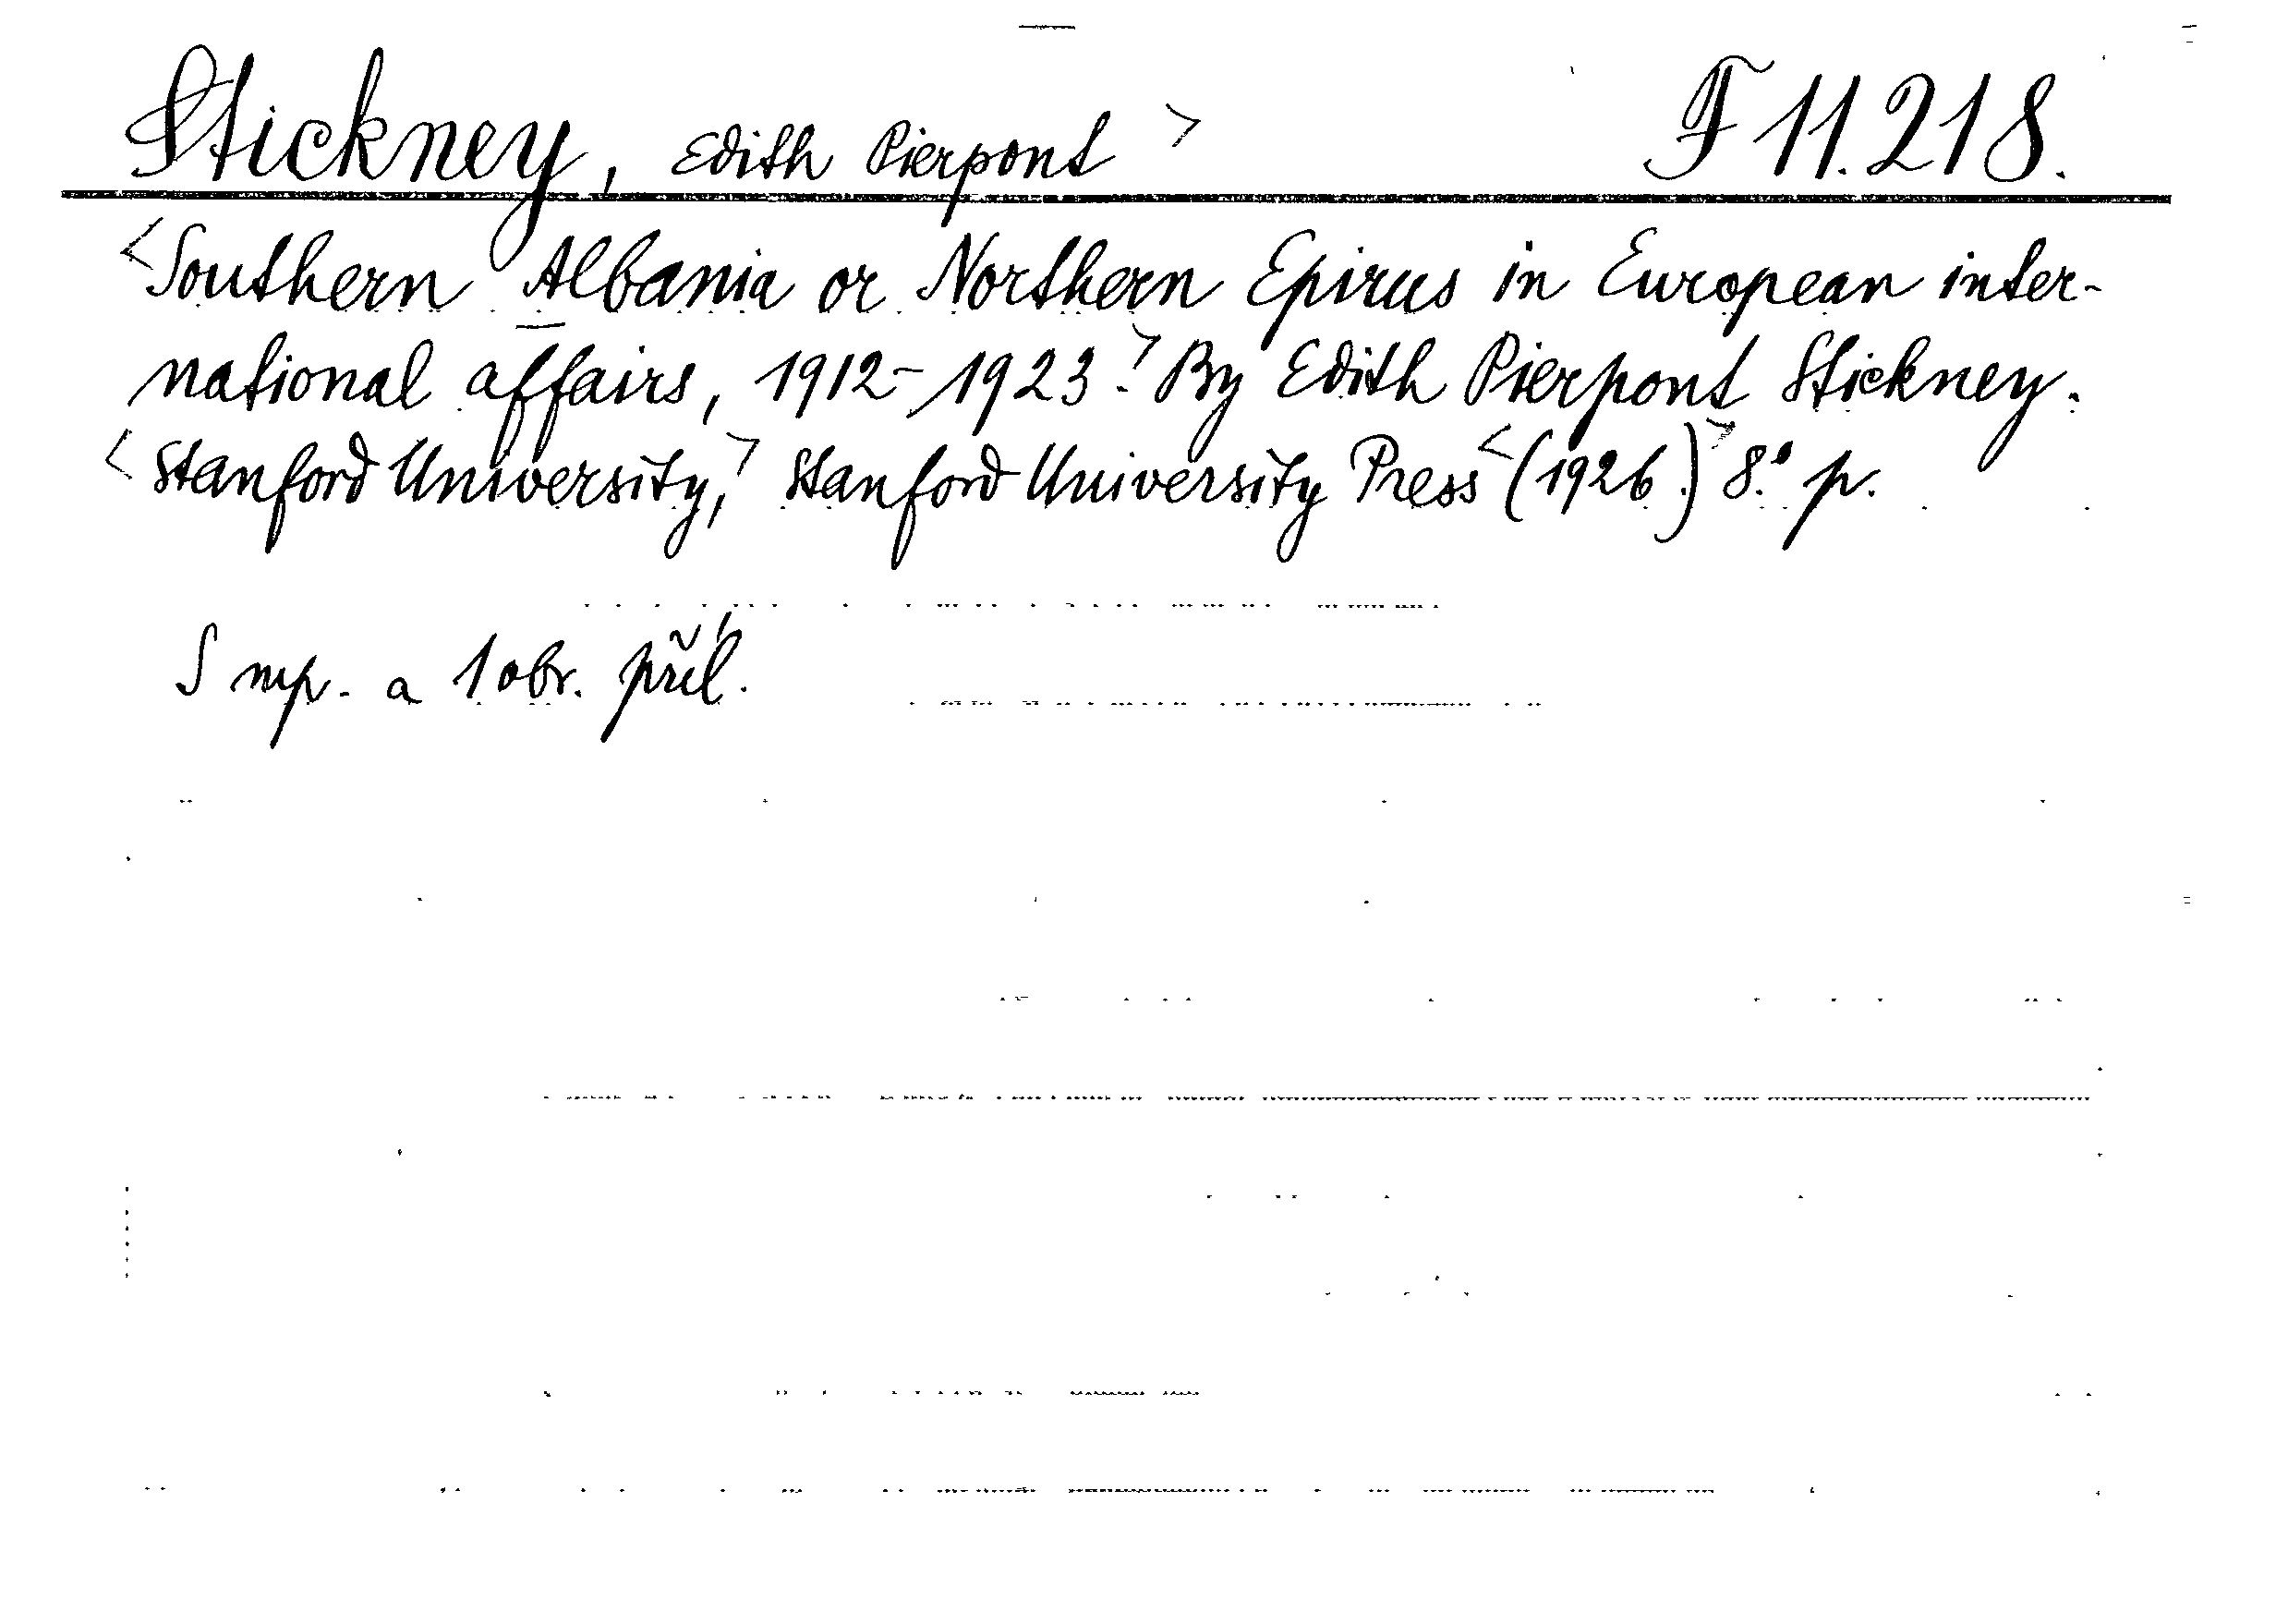 Stickney, Edith Pierpont > F 11.218.
<Southern Albania or Northern Epirus in European inter-
national affairs, 1912-1923.> By Edith Pierpont Stickney.
<Stanford University,> Stanford University Press <(1926.)> 8.° p.
S mp. a 1 obr. příl.